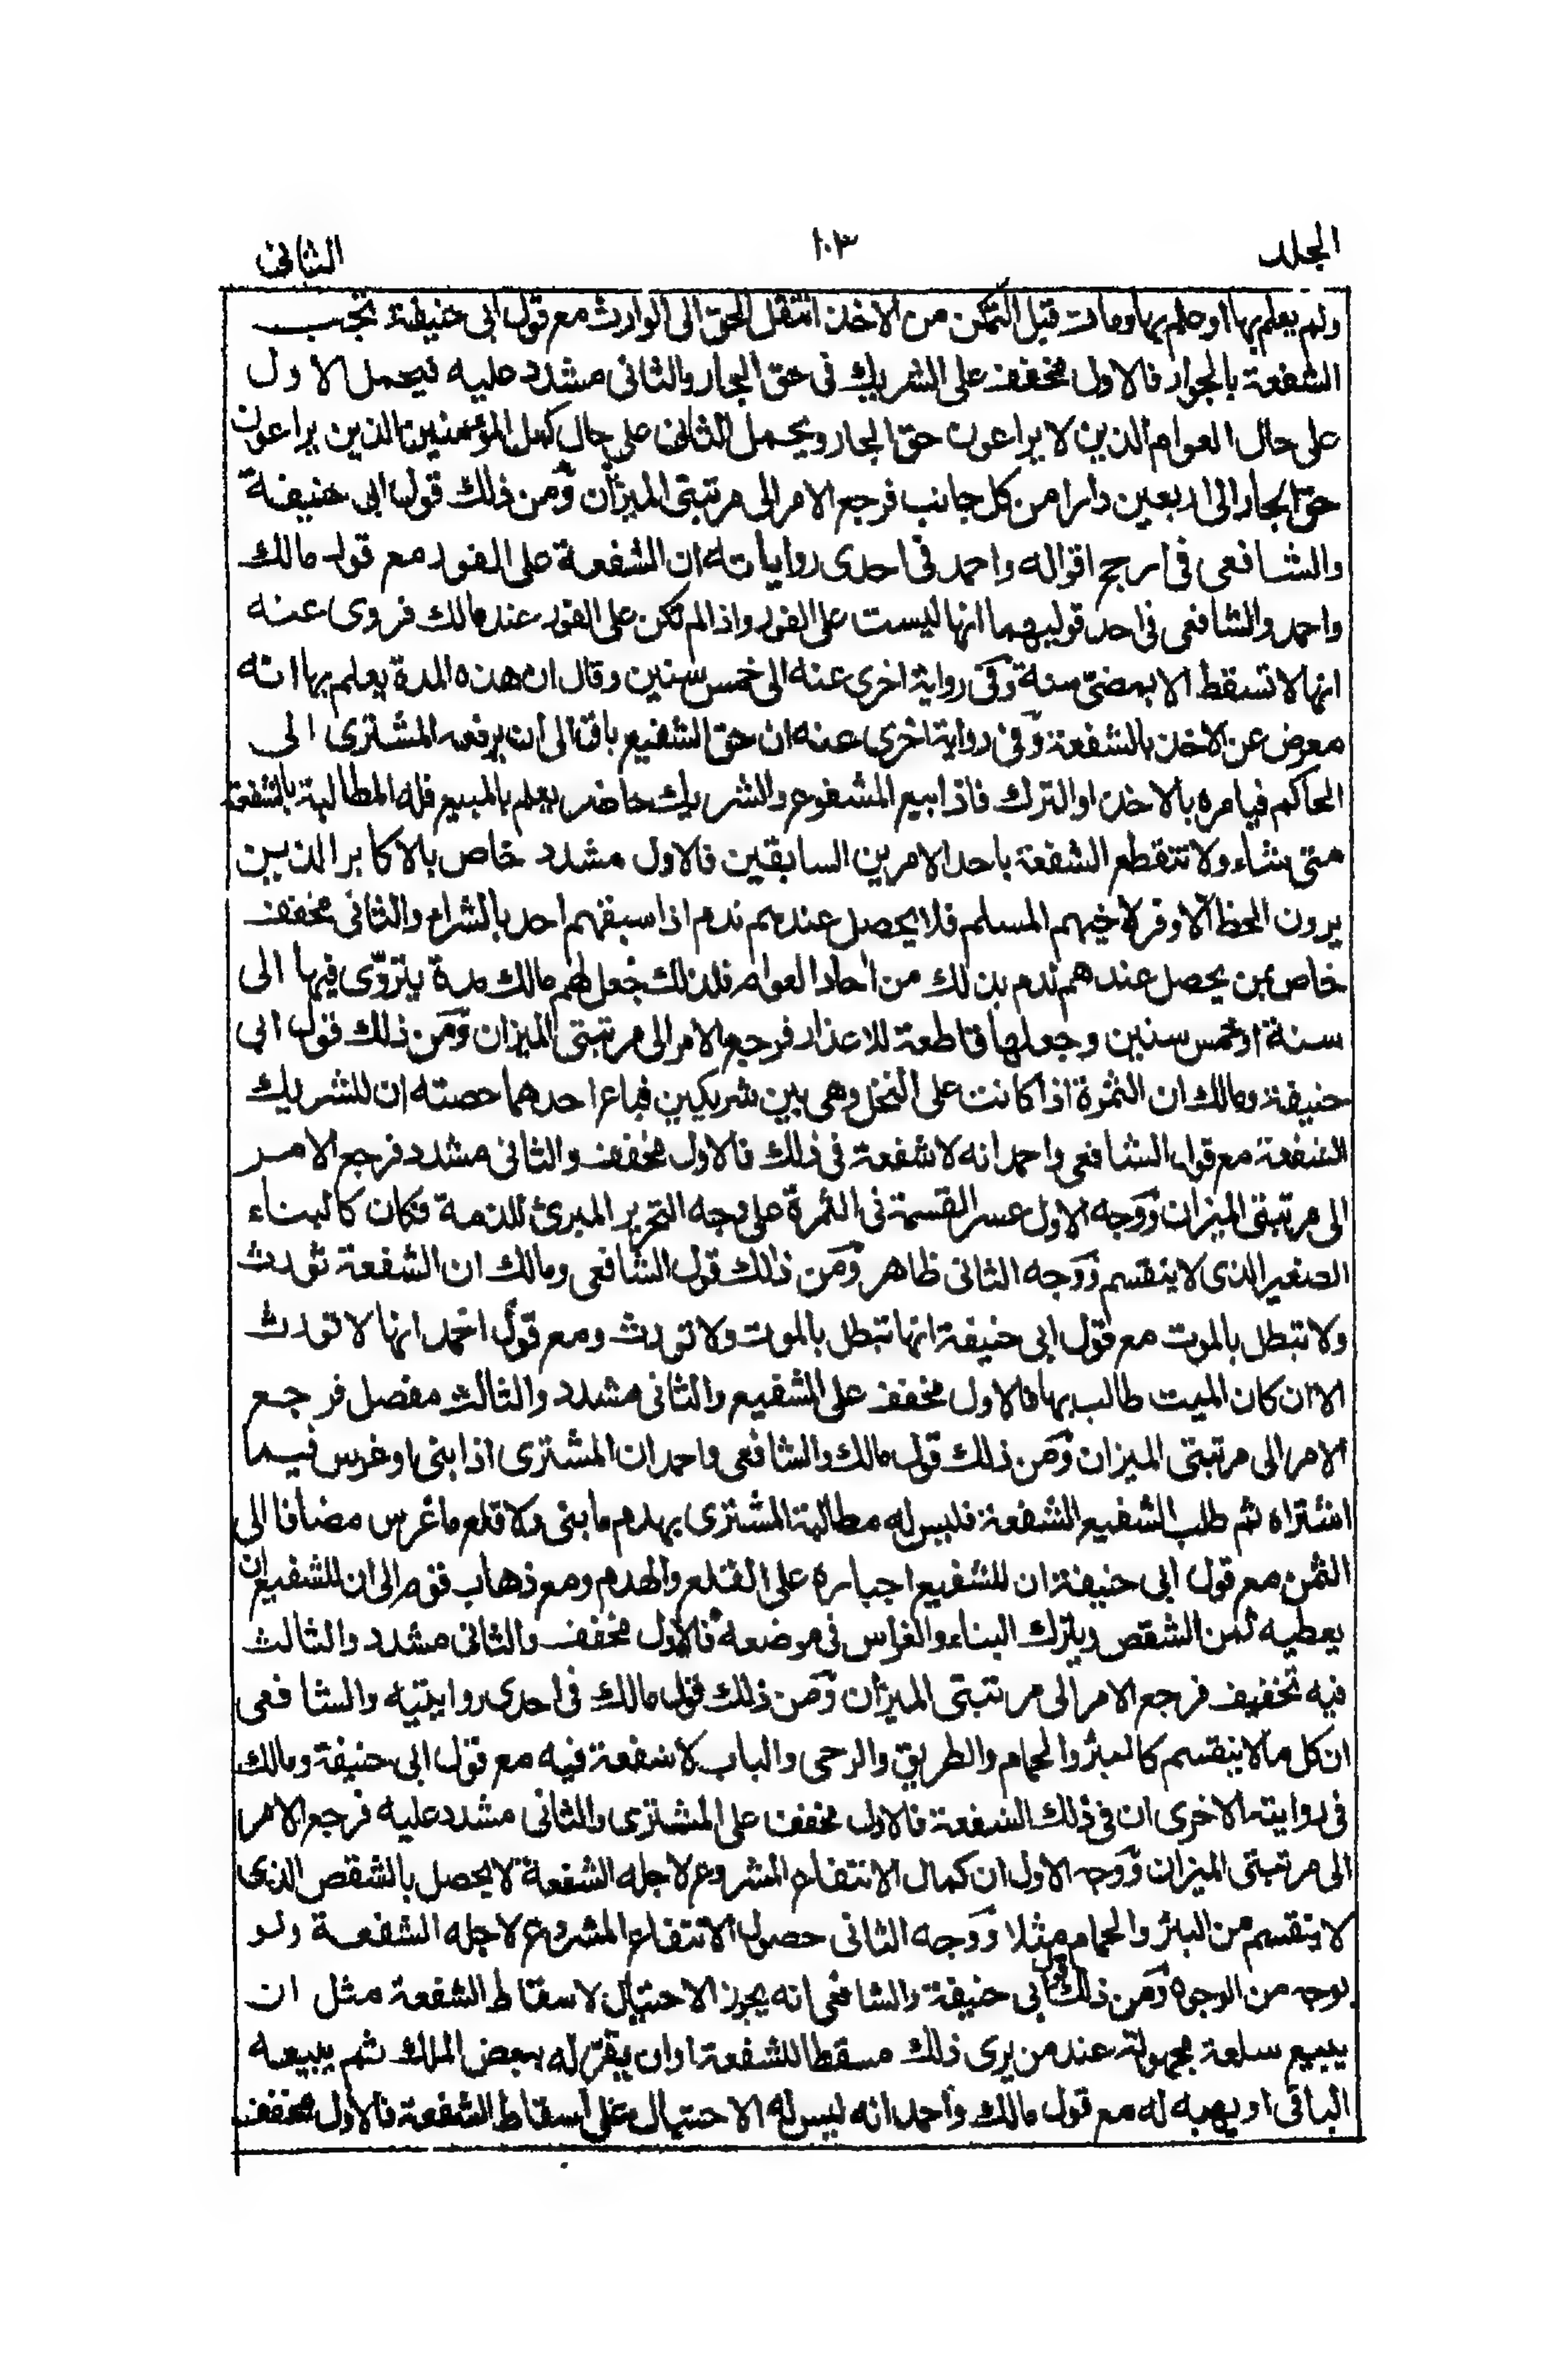 المجلد
١٠٣
الثانى
ولم يعلم بها او علم بها ومات قبل التمكن من الاخذ انتقل الحق الى الوارث مع قول ابى حنيفة تجب
الشفعة بالجوار فالاول مخفف على الشريك فى حق الجار والثانى مشدد عليه فيحمل الاول
على حال العوام الذين لا يراعون حق الجار ويحمل الثانى على حال كمل المؤمنين الذين يراعون
حق الجار الى اربعين دارا من كل جانب فرجع الامر الى مرتبتى الميزان ومن ذلك قول ابى حنيفة
والشافعى فى ارجح اقواله واحمد فى احدى رواياته ان الشفعة على الفور مع قول مالك
واحمد والشافعى فى احد قوليهما انها ليست على الفور واذا لم تكن على الفور عند مالك فروى عنه
انها لا تسقط الا بمضىّ سنة وفى رواية اخرى عنه الى خمس سنين وقال ان هذه المدة يعلم بها انه
معرض عن الاخذ بالشفعة وفى رواية اخرى عنه ان حق الشفيع باق الى ان يرفعه المشترى الى
الحاكم فيامره بالاخذ او الترك فاذا بيع المشفوع والشريك حاضر يعلم بالمبيع فله المطالبة بالشفعة
متى شاء ولا تنقطع الشفعة باحد الامرين السابقين فالاول مشدد خاص بالاكابر الذين
يرون الحظ الاوفر لاخيهم المسلم فلا يحصل عندهم ندم اذا سبقهم احد بالشراء والثانى مخفف
خاص بمن يحصل عندهم ندم بذلك من احاد العوام فلذلك جعل لهم مالك مدة يتروّى فيها الى
سنة او خمس سنين وجعلها قاطعة للاعذار فرجع الامر الى مرتبتى الميزان ومن ذلك قول ابى
حنيفة ومالك ان الثمرة اذا كانت على النخل وهى بين شريكين فباع احدهما حصته ان للشريك
الشفعة مع قول الشافعى واحمد انه لا شفعة فى ذلك فالاول مخفف والثانى مشدد فرجع الامر
الى مرتبتى الميزان ووجه الاول عسر القسمة فى الثمرة على وجه التحرير المبرئ للذمة فكان كالبناء
الصغير الذى لا ينقسم ووجه الثانى ظاهر ومن ذلك قول الشافعى ومالك ان الشفعة تورث
ولا تبطل بالموت مع قول ابى حنيفة انها تبطل بالموت ولا تورث ومع قول احمد انها لا تورث
الا ان كان الميت طالب بها فالاول مخفف على الشفيع والثانى مشدد والثالث مفصل فرجع
الامر الى مرتبتى الميزان ومن ذلك قول مالك والشافعى واحمد ان المشترى اذا بنى او غرس فيما
اشتراه ثم طلب الشفيع الشفعة فليس له مطالبة المشترى بهدم ما بنى ولا قلع ما غرس مضافا الى
الثمن مع قول ابى حنيفة ان للشفيع اجباره على القلع والهدم ومع ذهاب قوم الى ان للشفيع ان
يعطيه ثمن الشقص ويترك البناء والغراس فى موضعه فالاول مخفف والثانى مشدد والثالث
فيه تخفيف فرجع الامر الى مرتبتى الميزان ومن ذلك قول مالك فى احدى روايتيه والشافعى
ان كل ما لا ينقسم كالبئر والحمام والطريق والرحى والباب لا شفعة فيه مع قول ابى حنيفة ومالك
فى روايته الاخرى ان فى ذلك الشفعة فالاول مخفف على المشترى والثانى مشدد عليه فرجع الامر
الى مرتبتى الميزان ووجه الاول ان كمال الانتفاع المشروع لاجله الشفعة لا يحصل بالشقص الذى
لا ينقسم من البئر والحمام مثلا ووجه الثانى حصول الانتفاع المشروع لاجله الشفعة ولو
بوجه من الوجوه ومن ذلك قول ابى حنيفة والشافعى انه يجوز الاحتيال لاسقاط الشفعة مثل ان
يبيع سلعة مجهولة عند من يرى ذلك مسقطا للشفعة او ان يقرّ له ببعض الملك ثم يبيعه
الباقى او يهبه له مع قول مالك واحمد انه ليس له الاحتيال على اسقاط الشفعة فالاول مخفف